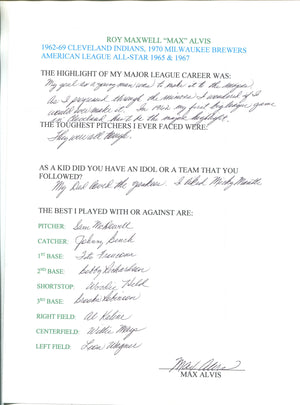 ROY MAXWELL "MAX" ALVIS
1962-69 CLEVELAND INDIANS, 1970 MILWAUKEE BREWERS
AMERICAN LEAGUE ALL-STAR 1965 & 1967
THE HIGHLIGHT OF MY MAJOR LEAGUE CAREER WAS:
My goal as a young man was to make it to the majors.
As I progressed through the minors I wondered if I
would ever make it. In 1962 my first big league game
in Cleveland has to be the major highlight.
THE TOUGHEST PITCHERS I EVER FACED WERE:
They were all tough.
AS A KID DID YOU HAVE AN IDOL OR A TEAM THAT YOU
FOLLOWED?
My Dad loved the Yankees. I liked Micky Mantle
THE BEST I PLAYED WITH OR AGAINST ARE:
PITCHER: Sam McDowell
CATCHER: Johnny Bench
1ST BASE: Tito Francona
2ND BASE: Bobby Richardson
SHORTSTOP: Woodie Held
3RD BASE: Brooks Robinson
RIGHT FIELD: Al Kaline
CENTERFIELD: Willie Mays
LEFT FIELD: Leon Wagner
Max Alvis
MAX ALVIS